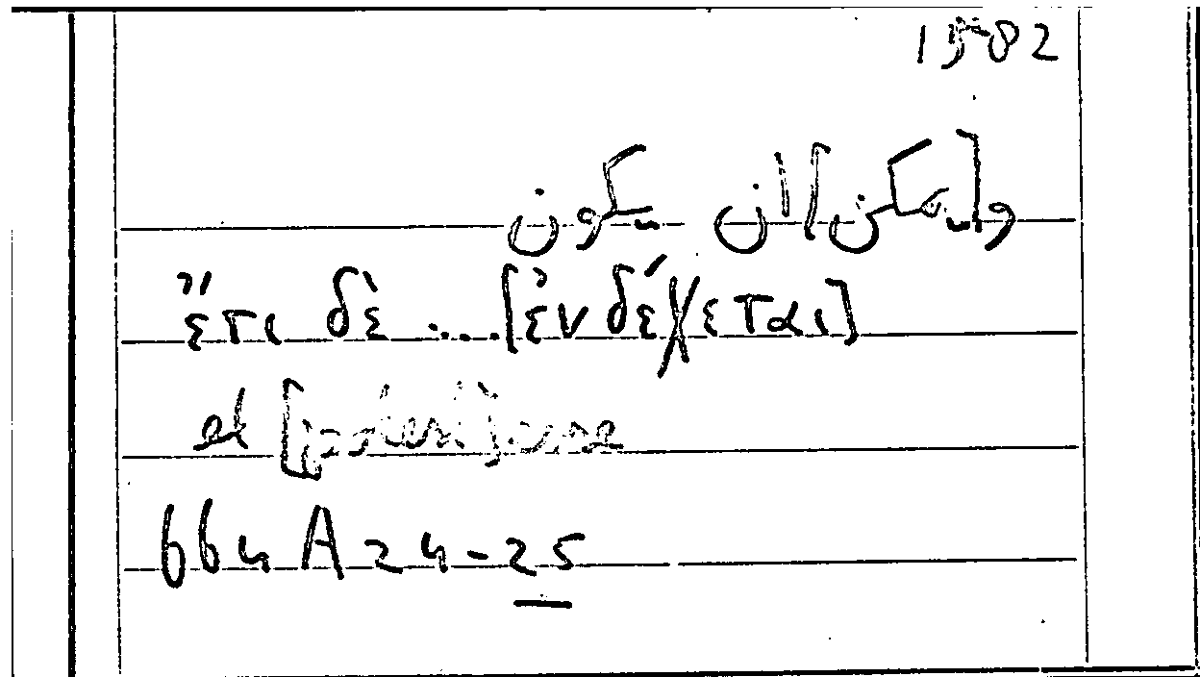 1582
و[يمكن] ان يكون
ἔτι δὲ ....[ἐνδέχεται]
et [potest] esse
664 A 24-25